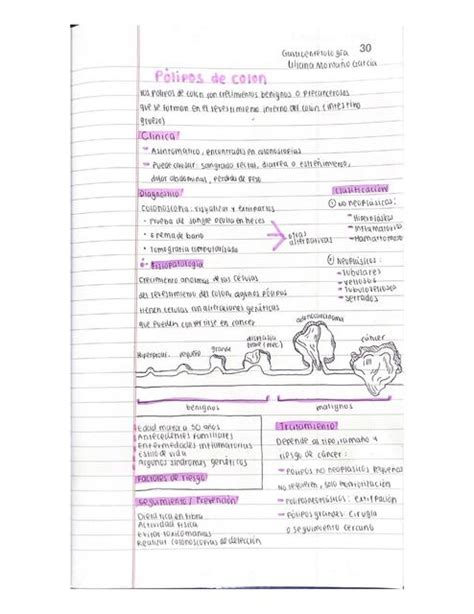 Gastroenterología 30
Liliana Montaño García
Pólipos de colon
Los pólipos de colon son crecimientos benignos o precancerosos
que se forman en el revestimiento interno del colon (intestino
grueso)
Clínica
Asintomático, encontrados en colonoscopias
Puede causar: sangrado rectal, diarrea o estreñimiento,
dolor abdominal, pérdida de peso
Diagnóstico
Colonoscopia: visualizar y extirparlos
- Prueba de sangre oculta en heces
- Enema de bario
- Tomografía computarizada
otras
alternativas
Clasificación
① No neoplásicos:
- Hiperplásicos
- Inflamatorios
- Hamartomas
② Neoplásicos:
- tubulares
- vellosos
- tubulovellosos
- serrados
Fisiopatología
Crecimiento anormal de las células
del revestimiento del colon, algunos pólipos
tienen células con alteraciones genéticas
que pueden convertirse en cáncer
pequeño
grande
adenocarcinoma
cáncer
benignos
malignos
Edad mayor a 50 años
Antecedentes familiares
Enfermedades inflamatorias
Estilo de vida
Algunos síndromes genéticos
Factores de riesgo
Tratamiento
Depende al tipo, tamaño y
riesgo de cáncer:
- Pólipos no neoplásicos pequeños
no requieren, solo monitorización
- Extirpación
- Pólipos grandes: Cirugía
o seguimiento cercano
Seguimiento / Prevención
Dieta rica en fibra
Actividad física
Evitar toxicomanías
Realizar colonoscopias de detección